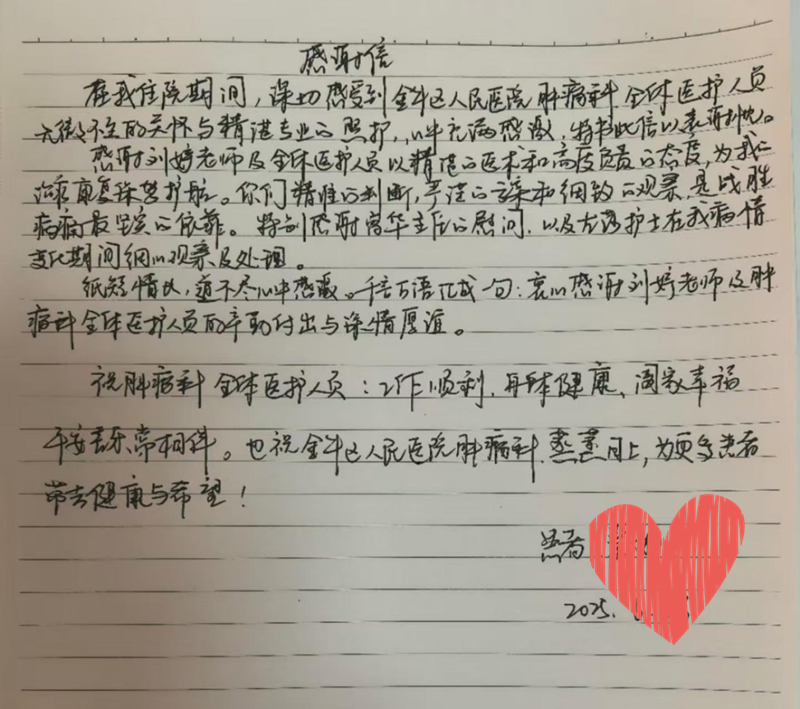 感谢信
在我住院期间，深切感受到金牛区人民医院肿瘤科全体医护人员
无微不至的关怀与精湛专业的照护，心中充满感激，特书此信以表谢忱。
感谢刘婷老师及全体医护人员以精湛的医术和高度负责的态度，为我的
治疗康复保驾护航。你们精准的判断，严谨的方案和细致的观察，是战胜
病痛最坚实的依靠。特别感谢 主任的慰问，以及 护士在我病情
变化期间细心观察及处理。
纸短情长，道不尽心中感激。千言万语化成一句：衷心感谢刘婷老师及肿
瘤科全体医护人员的辛勤付出与深情厚谊。
祝肿瘤科全体医护人员：工作顺利，身体健康、阖家幸福
平安喜乐、常相伴。也祝金牛区人民医院肿瘤科蒸蒸日上，为更多患者
带去健康与希望！
患者
2025.